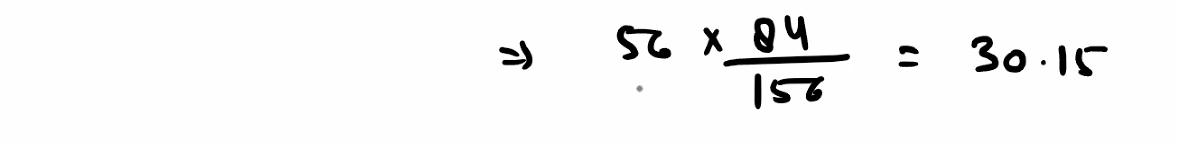 ⇒ 56 × 84/156 = 30.15